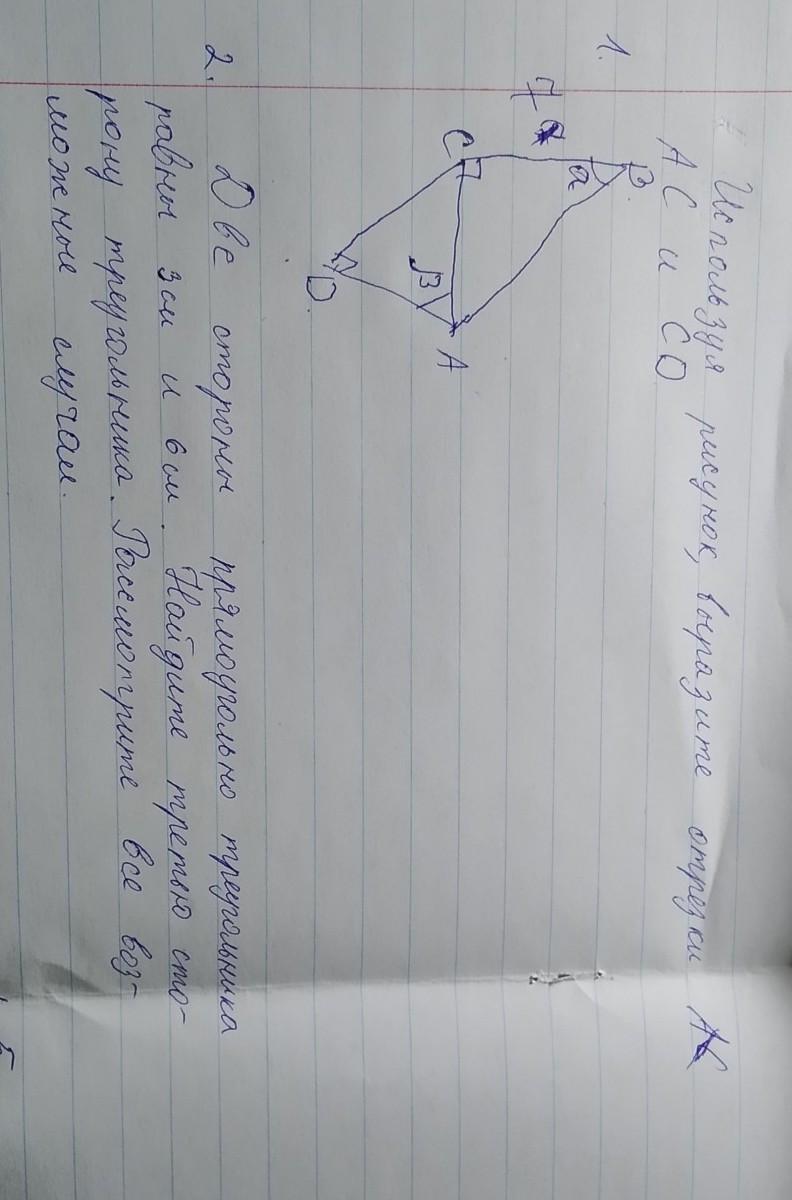 1. Используя рисунок, выразите отрезки
АС и СD
B
α
7
C
β
D
A
2. Две стороны прямоугольно треугольника
равны 3см и 6см. Найдите третью сто-
рону треугольника. Рассмотрите все воз-
можные случаи.